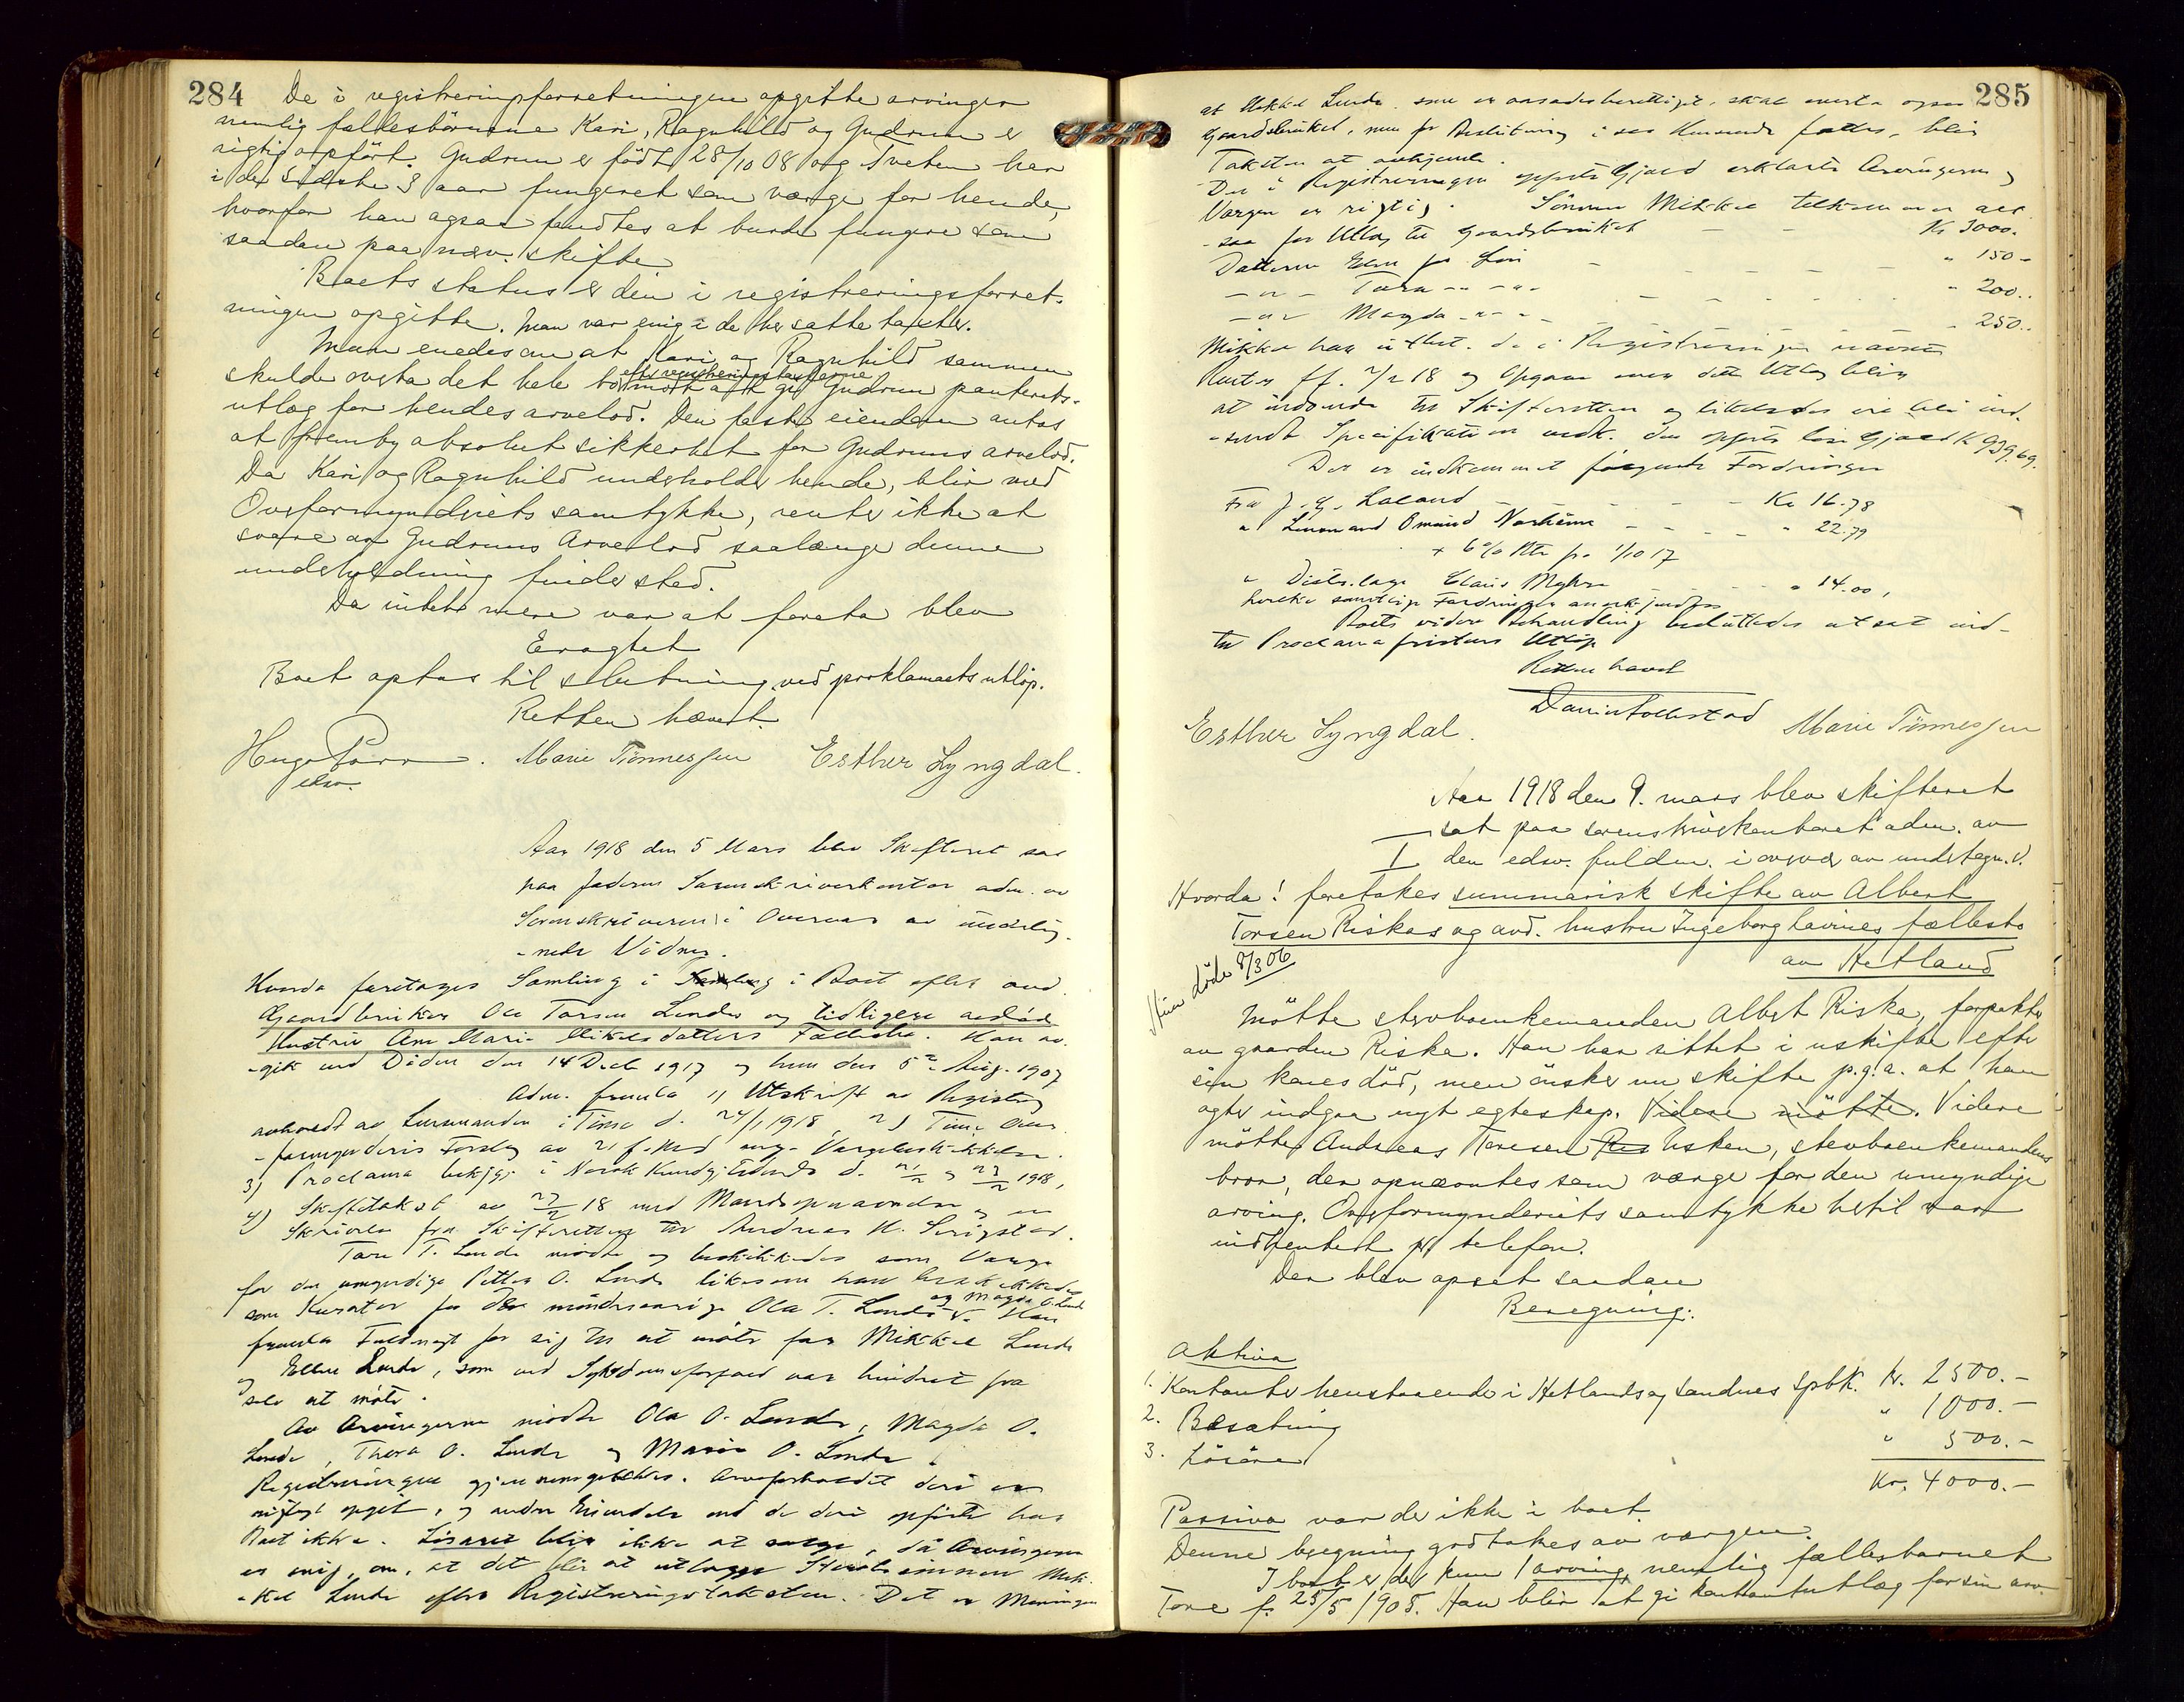 284
De i registreringsforretningen opgitte arvinger
nemlig fællesbörnene Kari, Ragnhild og Gudrun er
rigtig opfört. Gudrun er födt 28/10 08 og Tveten har
i de sidste 3 aar fungeret som værge for hende,
hvorfor han ogsaa fandtes at burde fungere som
saadan paa nærv. skifte.
Boets status er den i registreringsforret-
ningen opgitte. Man var enig i de her satte takster.
Man enedes om at Kari og Ragnhild sammen
skulde overta det hele bo efter registreringstaksterne mot at gi Gudrun panterets-
utlæg for hendes arvelod. Den faste eiendom antas
at fremby absolut sikkerhet for Gudruns arvelod.
Da Kari og Ragnhild underholder hende, blir med
Overformynderiets samtykke, renter ikke at
svare av Gudruns Arvelod saalænge denne
underholdning finder sted.
Da intet mere var at foreta blev
Eragtet
Boet optas til slutning ved proklamaets utløp.
Retten hævet.
Marie Tönnessen Esther Lyngdal.
edsv.
Aar 1918 den 5 Mars blev Skifteret sat
paa Jæderens Sorenskriverkontor adm. av
Sorenskriveren i Overvær av underteg-
-nede Vidner.
Hvorda foretoges Samling i Boet efter avd.
Gaardbruker Ola Torsen Lende og tidligere avdöde
Hustru Ane Marie Mikkelsdatters Fællesbo. Han av-
-gik ved Döden den 14 Decb 1917 og hun den 5te Aug. 1907
Adm. fremla 1) Utskrift av Registrg
avholdt av Lensmanden i Time d. 24/1 1918, 2) Time Over-
-formynderis Forslag av 21 f. Md ang. Værgebeskikkelse.
3) Proclama bekjgj. i Norsk Kundgj. Tidende d. 21/2 og 23/2 1918,
4) Skiftetakst av 27/2 18 med Mandsopnævnelse og en
Skrivelse fra Skifteretten til Andreas H. Serigstad.
Tore T. Lende mödte og beskikkedes som Værge
for den umyndige Petter O. Lende likesom han beskikkedes
som Kurator for den mindreaarige Ola T. Lende og Magda O. Lende. Han
fremla Fuldmagt for sig til at möte for Mikkel Lende
og Ellen Lende, som ved Sykdomsforfald var hindret fra
selv at möte.
Av Arvingerne mödte Ola O. Lende, Magda O.
Lende, Thora O. Lende og Marie O. Lende.
Registreringen gjennemgikkes. Arveforholdet deri er
rigtig opgit, og andre Eiendele end de deri opförte har
Boet ikke. Lösöret blir ikke at sælge, da Arvingerne
er enig om, at det blir at utlægge Sterbsönnen Mik-
-kel Lende efter Registreringstaksten. Det er Meningen
285
at Mikkel Lende, som er aasædesberettiget, skal overta ogsaa
Gaardsbruket, men för Beslutning i saa Henseende fattes, blir
Taksten at avhjemle.
Den i Registreringen opförte Gjæld erklærte Arvingerne og
Værgen er rigtig. Sönnen Mikkel tilkommer al-
-saa for Utlæg til Gaardsbruket Kr 3000.
Datteren Ellen for Lön " 150 -
- " - Tora - " - - " - " 200..
- " - Magda - " - - " 250..
Mikkel har utbet. de i Registreringen nævnte
Renter ff. 2/2 18 og Opgave over dette Utlæg blir
at indsende til Skifteretten og likeledes vil bli ind-
-sendt Specifikation vedk. den opförte löse Gjæld K 939.69.
Der er indkommet fölgende Fordringer
Fra J. G. Laland Kr 16.78
" Lensmand Omund Norheim " 22.79
+ 6% Rte fr. 1/10 17
" Distr.læge Claus Myhre " 14.00,
hvilke samtlige Fordringer anerkjendtes
Boets videre Behandling besluttedes utsat ind-
til Proclamafristens Utlöp
Retten hævet
Esther Lyngdal. Marie Tönnessen
Aar 1918 den 9. mars blev skifteret
sat paa sorenskriverkontoret adm. av
den edsv. fuldm. i overvær av undertegn. V.
Hvorda! foretokes summarisk skifte av Albert
Torsen Riskas og avd. hustru Ingeborg Lavines fællesbo
av Hetland
Hun döde 8/3 06
Mötte sterboenkemanden Albert Riska, forpakter
av gaarden Riska. Han har sittet i uskifte efter
sin kones död, men önsker nu skifte p.g.a. at han
agter indgaa nyt egteskap. Videre mötte. Videre
mötte Andreas Toresen Usken, sterboenkemandens
bror, der opnævntes som værge for den umyndige
arving. Overformynderiets samtykke hertil var
indhentet pr telefon.
Der blev opsat saadan
Beregning:
Aktiva
1. Kontanter henstaaende i Hetlands og Sandnes Spbk. kr. 2500.-
2. Besætning " 1000.-
3. Lösöre " 500.-
Kr. 4000.-
Passiva var der ikke i boet.
Denne beregning godtokes av værgen.
I boet er der kun 1 arving, nemlig fællesbarnet
Tore f. 25/5 1905. Han blir at gi kontant utlæg for sin arv.